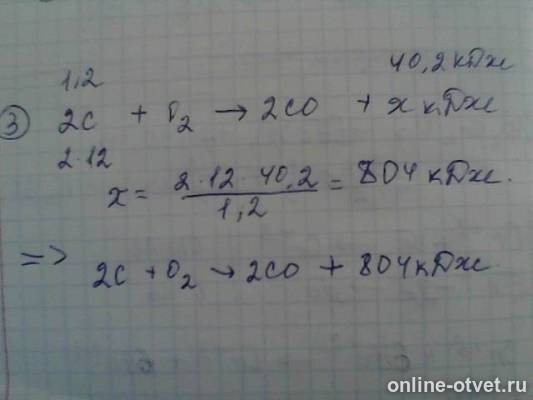 1,2 40,2 кДж
③ 2C + O₂ → 2CO + x кДж
2·12
x = (2·12·40,2)/1,2 = 804 кДж.
=> 2C + O₂ → 2CO + 804 кДж.
online-otvet.ru